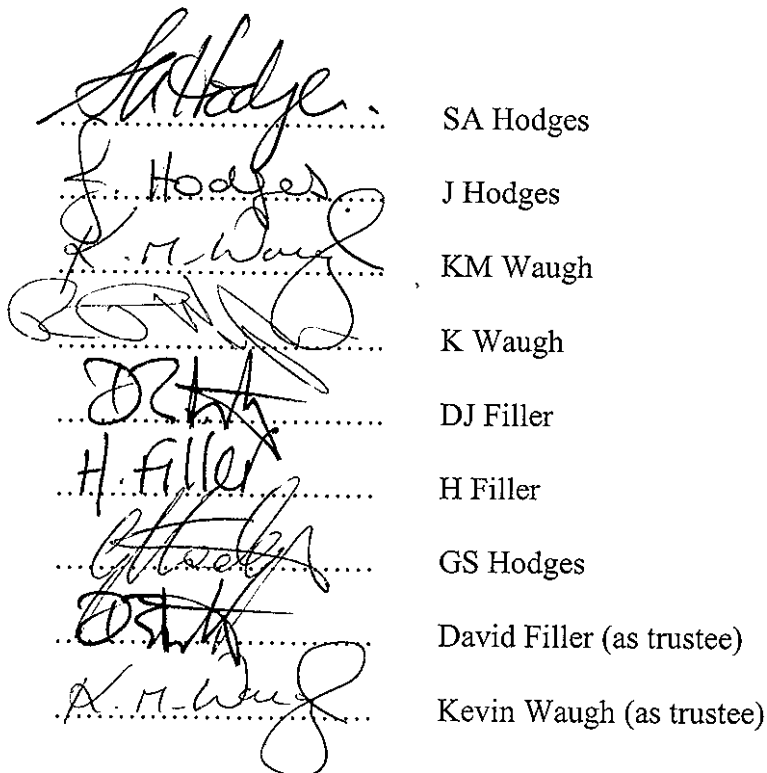 SA Hodges. SA Hodges
J. Hodges J Hodges
K. M. Waugh KM Waugh
K Waugh
DJ Filler
H. Filler H Filler
GHodges GS Hodges
David Filler (as trustee)
K. M. Waugh Kevin Waugh (as trustee)